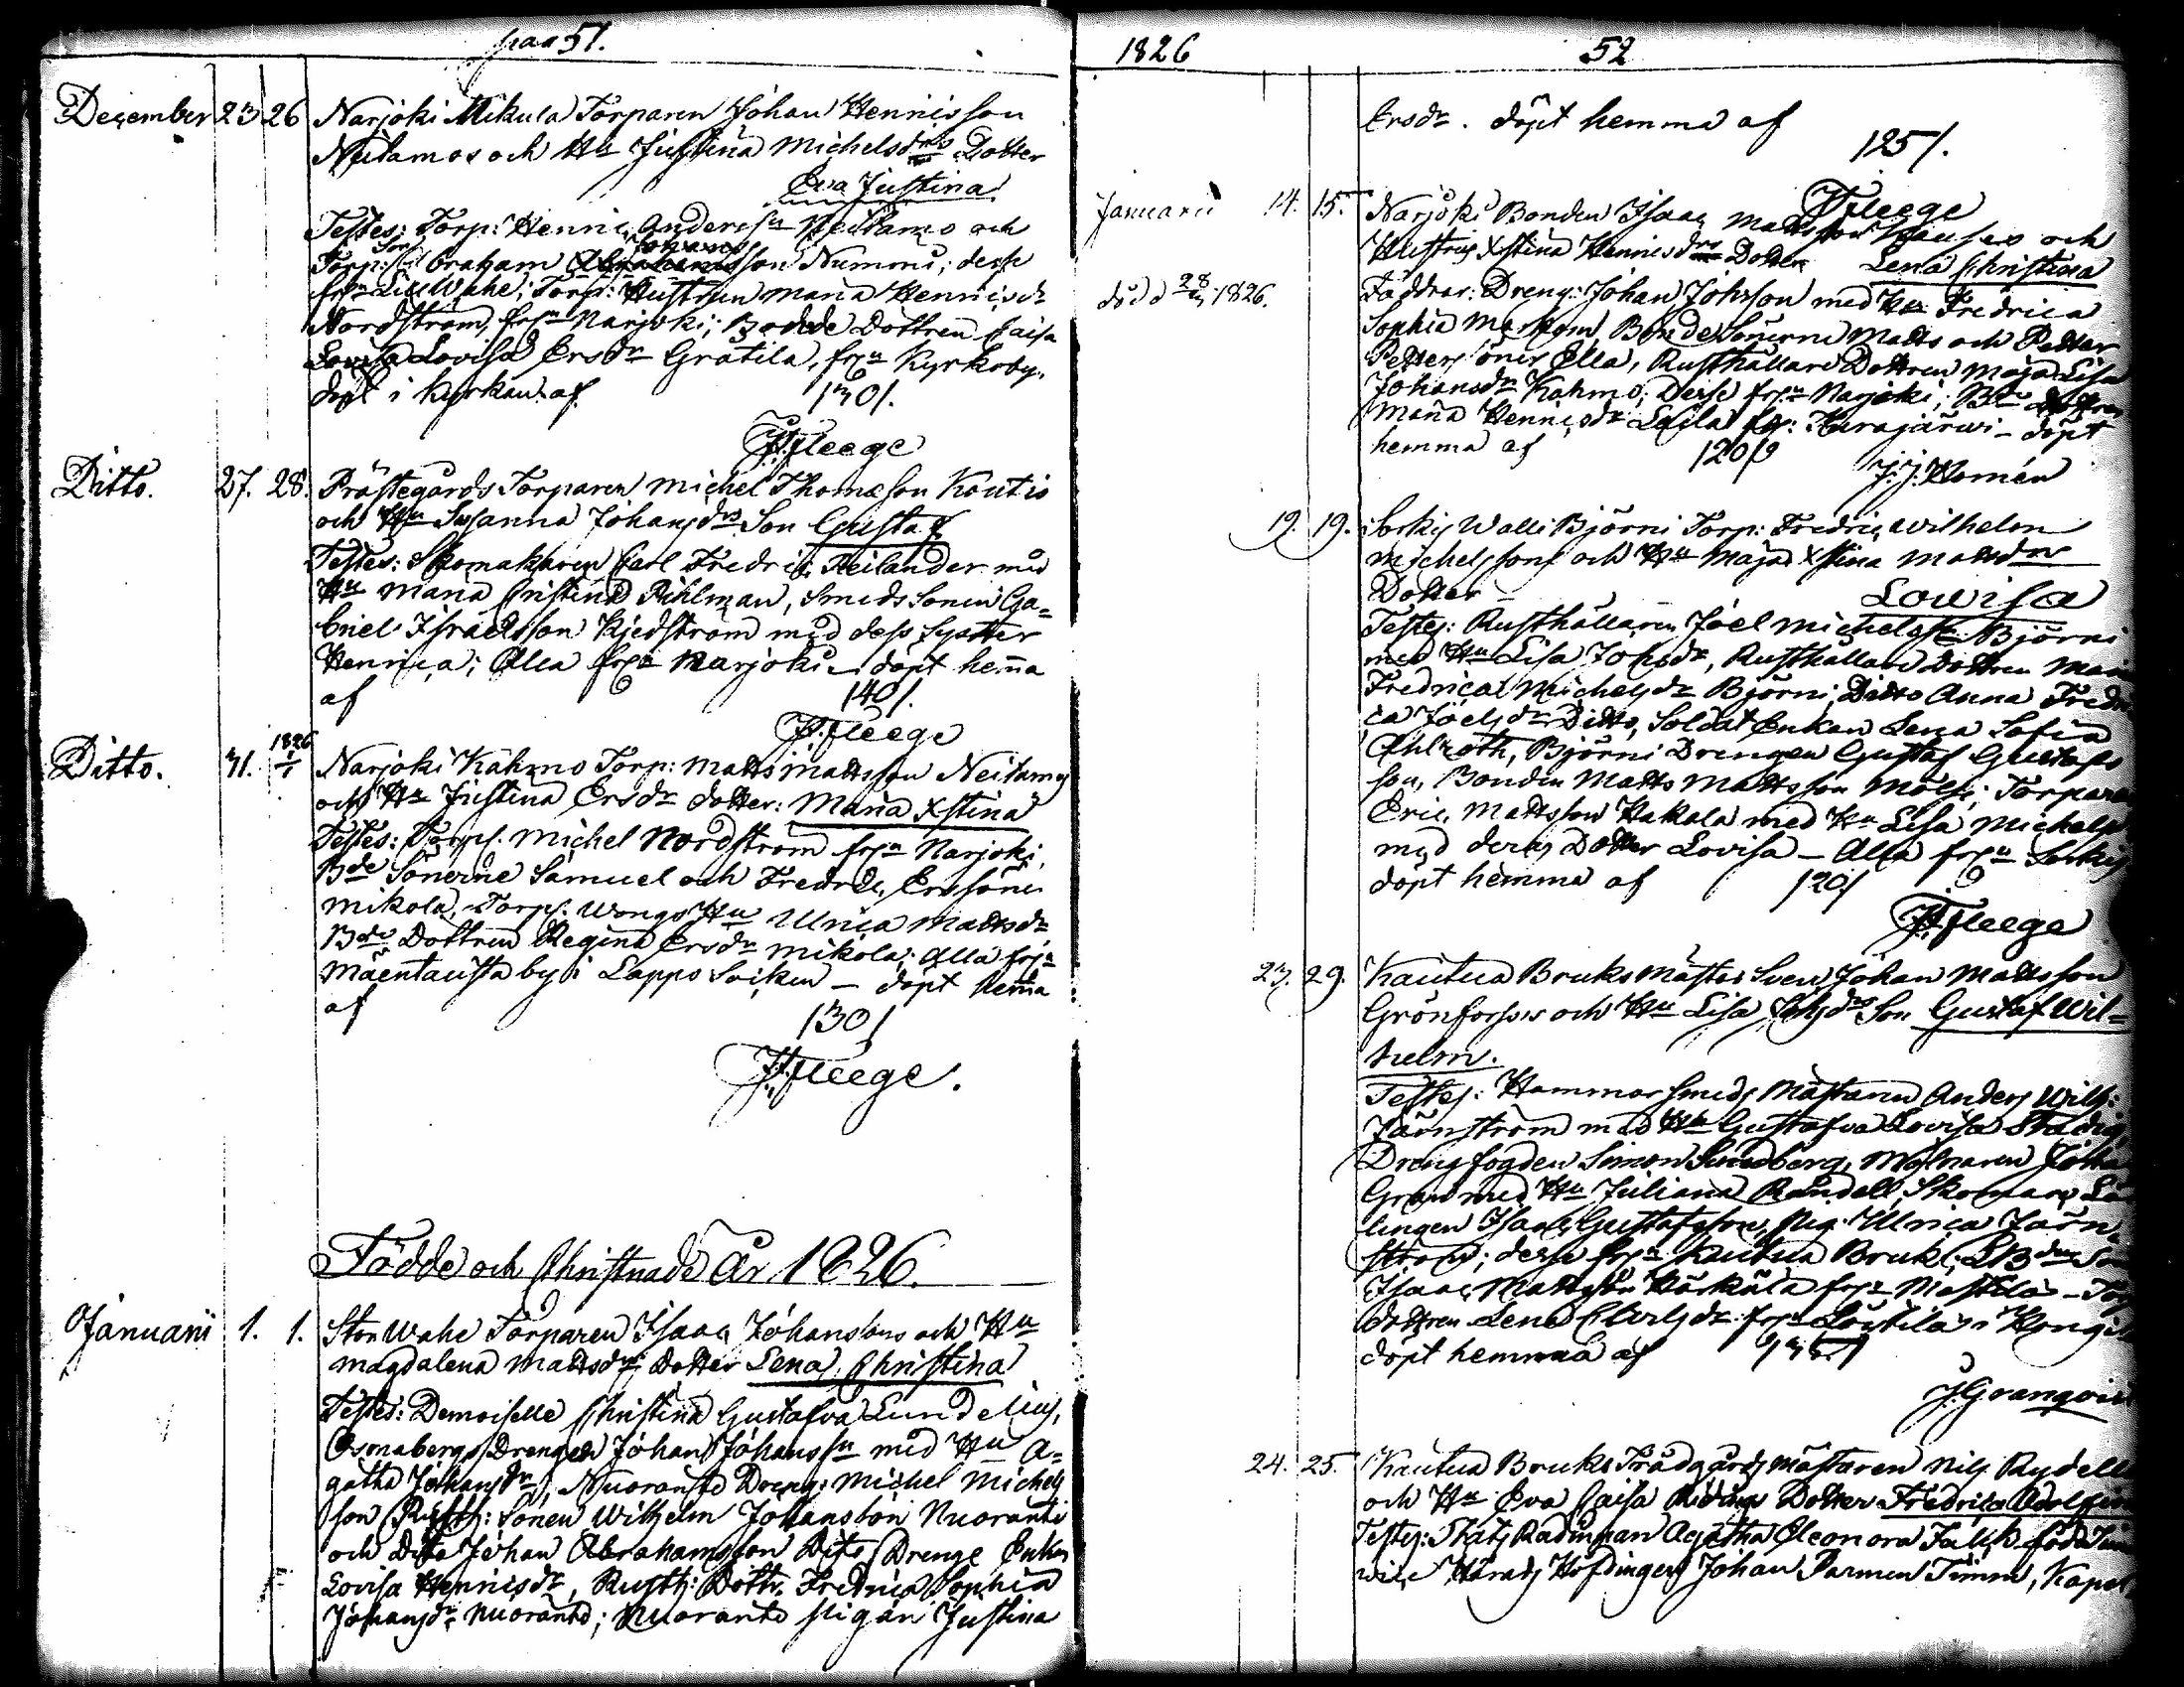 pag 51.
December 23 26 Narjoki Mikula Torparen Johan Henricsson
Neitamos och Hu Justina Michelsdrs Dotter
Eva Justina
Testes: Torp: Henric Andersn Neitamo och
Torp: Son Abraham Johansson Nummi; desse
frn Lill Wahe; Torp: Hustrun Maria Henricsdr
Nordström, frn Narjoki; Bonde Dottren Caisa
Lovisa Ersdr Gratila, frn Kyrkoby.
döpt i Kyrkan af 130/.
JFleege
Ditto. 27. 28. Prästegårds Torparen Michel Thomasson Koutio
och Hu Susanna Johansdrs Son Gustaf
Testes: Skomakaren Carl Fredric Reilander med
Hu Maria Cristina Pihlman, Smeds Sonen Ga=
briel Israelsson Kjedström med dess Syster
Henrica; Alla frn Narjoki – döpt hemma
af 140/.
JFleege
Ditto. 31. 1826 1/1 Narjoki Kahmo Torp: Matts Mattsson Neitamo
och Hu Justina Ersdr dotter: Maria Xstina
Testes: Torps. Michel Nordström frn Narjoki,
Bde Sönerne Samuel och Fredric Erssöner
Mikola, Torps. Wongs Hu Ulrica Mattsdr
Bde Dottren Regina Ersdr Mikola; Alla frn
Mäentausta by i Lappo Socken – döpt hemma
af 130/
JFleege.
Födde och Christnade År 1826.
Januarii 1. 1. Stor Wahe Torparen Isaac Johanssons och Hu
Magdalena Mattsdrs dotter Lena Christina
Testes: Demoiselle Christina Gustafva Lundelius,
Osmabergs Drengen Johan Johanssn med Hu A=
gatha Johansdr, Nuoranto Dreng: Michel Michels
son Rusth: Sonen Wilhelm Johansson Nuoranto
och Ditto Johan Abrahamsson Dito Drenge Enkan
Lovisa Henricsdr, Rusth: Dottr. Fredrica Sophia
Johansdr Nuoranto; Nuoranto Pigan Justina
1826 52
Ersdr. döpt hemma af
125/.
JFleege
Januarii 14. 15. Narjoki Bonden Isaac Mattsson och
Hustrus Xstina Henricsdrs Dotter Lena Christina
död d 28 1826.
Faddrar: Dreng: Johan Johsson med Hu Fredrica
Sophia Bonde Sönerne Matts och Petter
Petters söner Ella, Rusthållare Dottren Maja Lisa
Johansdr Kahmo; Desse frn Narjoki; Bde Dottren
Maria Henricsdr Laila frn: Kurajärwi – döpt
hemma af 120/
J.J. Homén
19. 19. Sorkis Walli Björni Torp: Fredric Wilhelm
Michelssons och Hu Maja Xstina Mattsdrs
Dotter – Lovisa
Testes: Rusthållaren Joel Michelssn Björni
med Hu Lisa Johsdr, Rusthållare Dottren Maria
Fredrica Michelsdr Björni, Ditto Anna Fredri
ca Joelsdr Ditto, Soldat Enkan Lena Sofia
Ahlroth, Björni Drengen Gustaf Gustafs
son, Bonden Matts Mattsson Mölsi, Torparen
Eric Mattsson Hakala med Hu Lisa Michelsdr
med deras Dotter Lovisa – Alla frn Sorkis
döpt hemma af 120/
JFleege
23. 29. Kautua Bruks Mäster Sven Johan Mattsson
Grönforsses och Hu Lisa Johsdrs Son Gustaf Wil=
helm.
Testes: Hammar Smeds Mästaren Anders Wilh:
Järnström med Hu Gustafva Lovisa Stadig
Drengfogden Simon Sundberg, Mjölnaren Johan
Gran med Hu Juliana Randell, Skomare Lär
lingen Isaac Gustafsson, Pig: Ulrica Järn
ström; desse frn Kautua Bruk; Bdes Son
Isaac Mattsson Härkälä frn
dottren Lena Carlsdr frn i
döpt hemma af
J. Granqvist
24. 25. Kautua Bruks Trädgårds Mästaren Nils Rydell
och Hu Eva Caisa Dotter Fredrica Adolfina
Testes: Stats Rådinnan Agatha Eleonora Falck född
vice Härads Höfdingen Johan Parmen Timm, Kapel